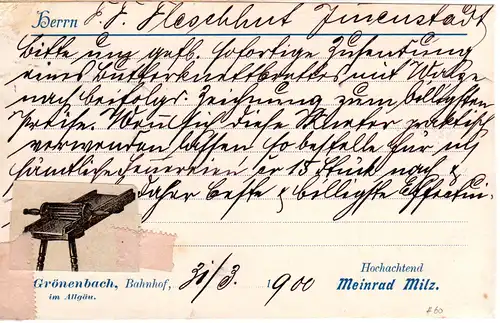 Herrn J. F. Fleschhut Immenstadt
Bitte um gefl. sofortige Zusendung
eines Butterknettbrettes mit Walze
nach beifolgd. Zeichnung zum billigsten
Preise. Wenn sich diese Muster praktisch
verwenden lassen so bestelle für alle
sämtliche ca 15 Stück nach &
daher beste & billigste Effectui-
Grönenbach, Bahnhof, 31/3. 1900
im Allgäu.
Hochachtend
Meinrad Milz.